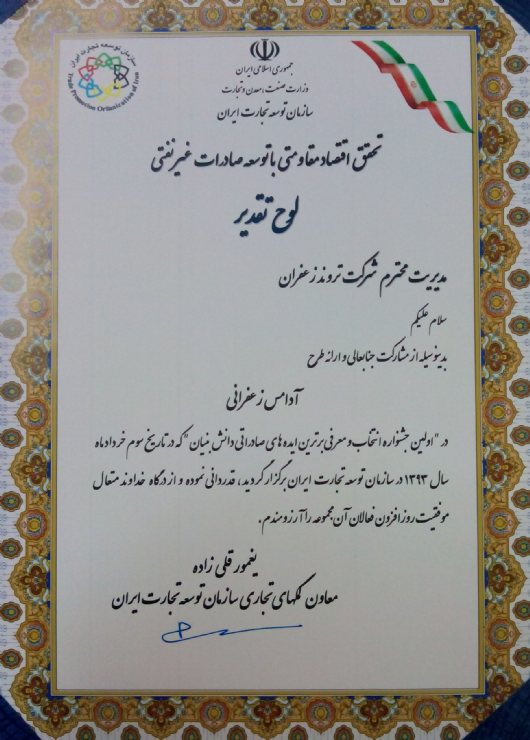 سازمان توسعه تجارت ایران
Trade Promotion Organization of Iran
جمهوری اسلامی ایران
وزارت صنعت، معدن و تجارت
سازمان توسعه تجارت ایران
تحقق اقتصاد مقاومتی با توسعه صادرات غیرنفتی
لوح تقدیر
مدیریت محترم شرکت تروند زعفران
سلام علیکم
بدینوسیله از مشارکت جنابعالی و ارائه طرح
آدامس زعفرانی
در "اولین جشنواره انتخاب و معرفی برترین ایده های صادراتی دانش بنیان" که در تاریخ سوم خرداد ماه
سال ۱۳۹۳ در سازمان توسعه تجارت ایران برگزار گردید، قدردانی نموده و از درگاه خداوند متعال
موفقیت روز افزون فعالان آن مجموعه را آرزومندم.
یغمور قلی زاده
معاون کمکهای تجاری سازمان توسعه تجارت ایران